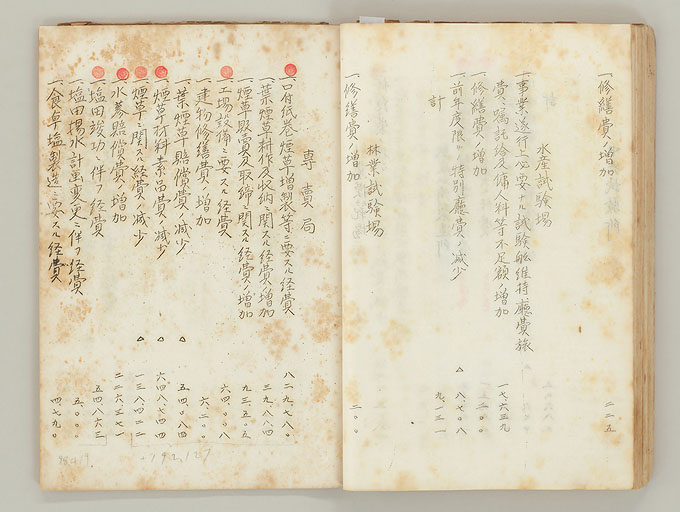 一、修繕費ノ増加 二二五
水産試験場
一、事業遂行上必要ナル試験船維持廳費旅
費、嘱託給及傭人料等不足額ノ増加 一七、六三九
一、修繕費ノ増加
一、前年度限リノ特別廳費ノ減少 △ 八、七〇八
計 九、一三一
林業試験場
一、修繕費ノ増加 二〇〇
専賣局
一、口付紙巻煙草増製等ニ要スル経費 八二九、七八〇
一、葉煙草耕作及收納ニ関スル経費ノ増加 三九、八八四
一、煙草販賣及取締ニ関スル経費ノ増加 九三、五〇五
一、工場設備ニ要スル経費 六四、〇〇八
一、建物修繕費ノ増加 六、二〇〇
一、葉煙草賠償費ノ減少 △ 五四、〇〇八
一、煙草材料素品費ノ減少 △ 六四八、七四四
一、煙草ニ関スル経費ノ減少 △ 一三八、四二二
一、水蔘賠償費ノ増加 二二六、三七一
一、塩田竣功ニ伴フ経費 五四、八六三
一、塩田揚水計畫変更ニ伴フ経費 五、〇〇〇
一、食卓塩製造ニ要スル経費 四、七九〇